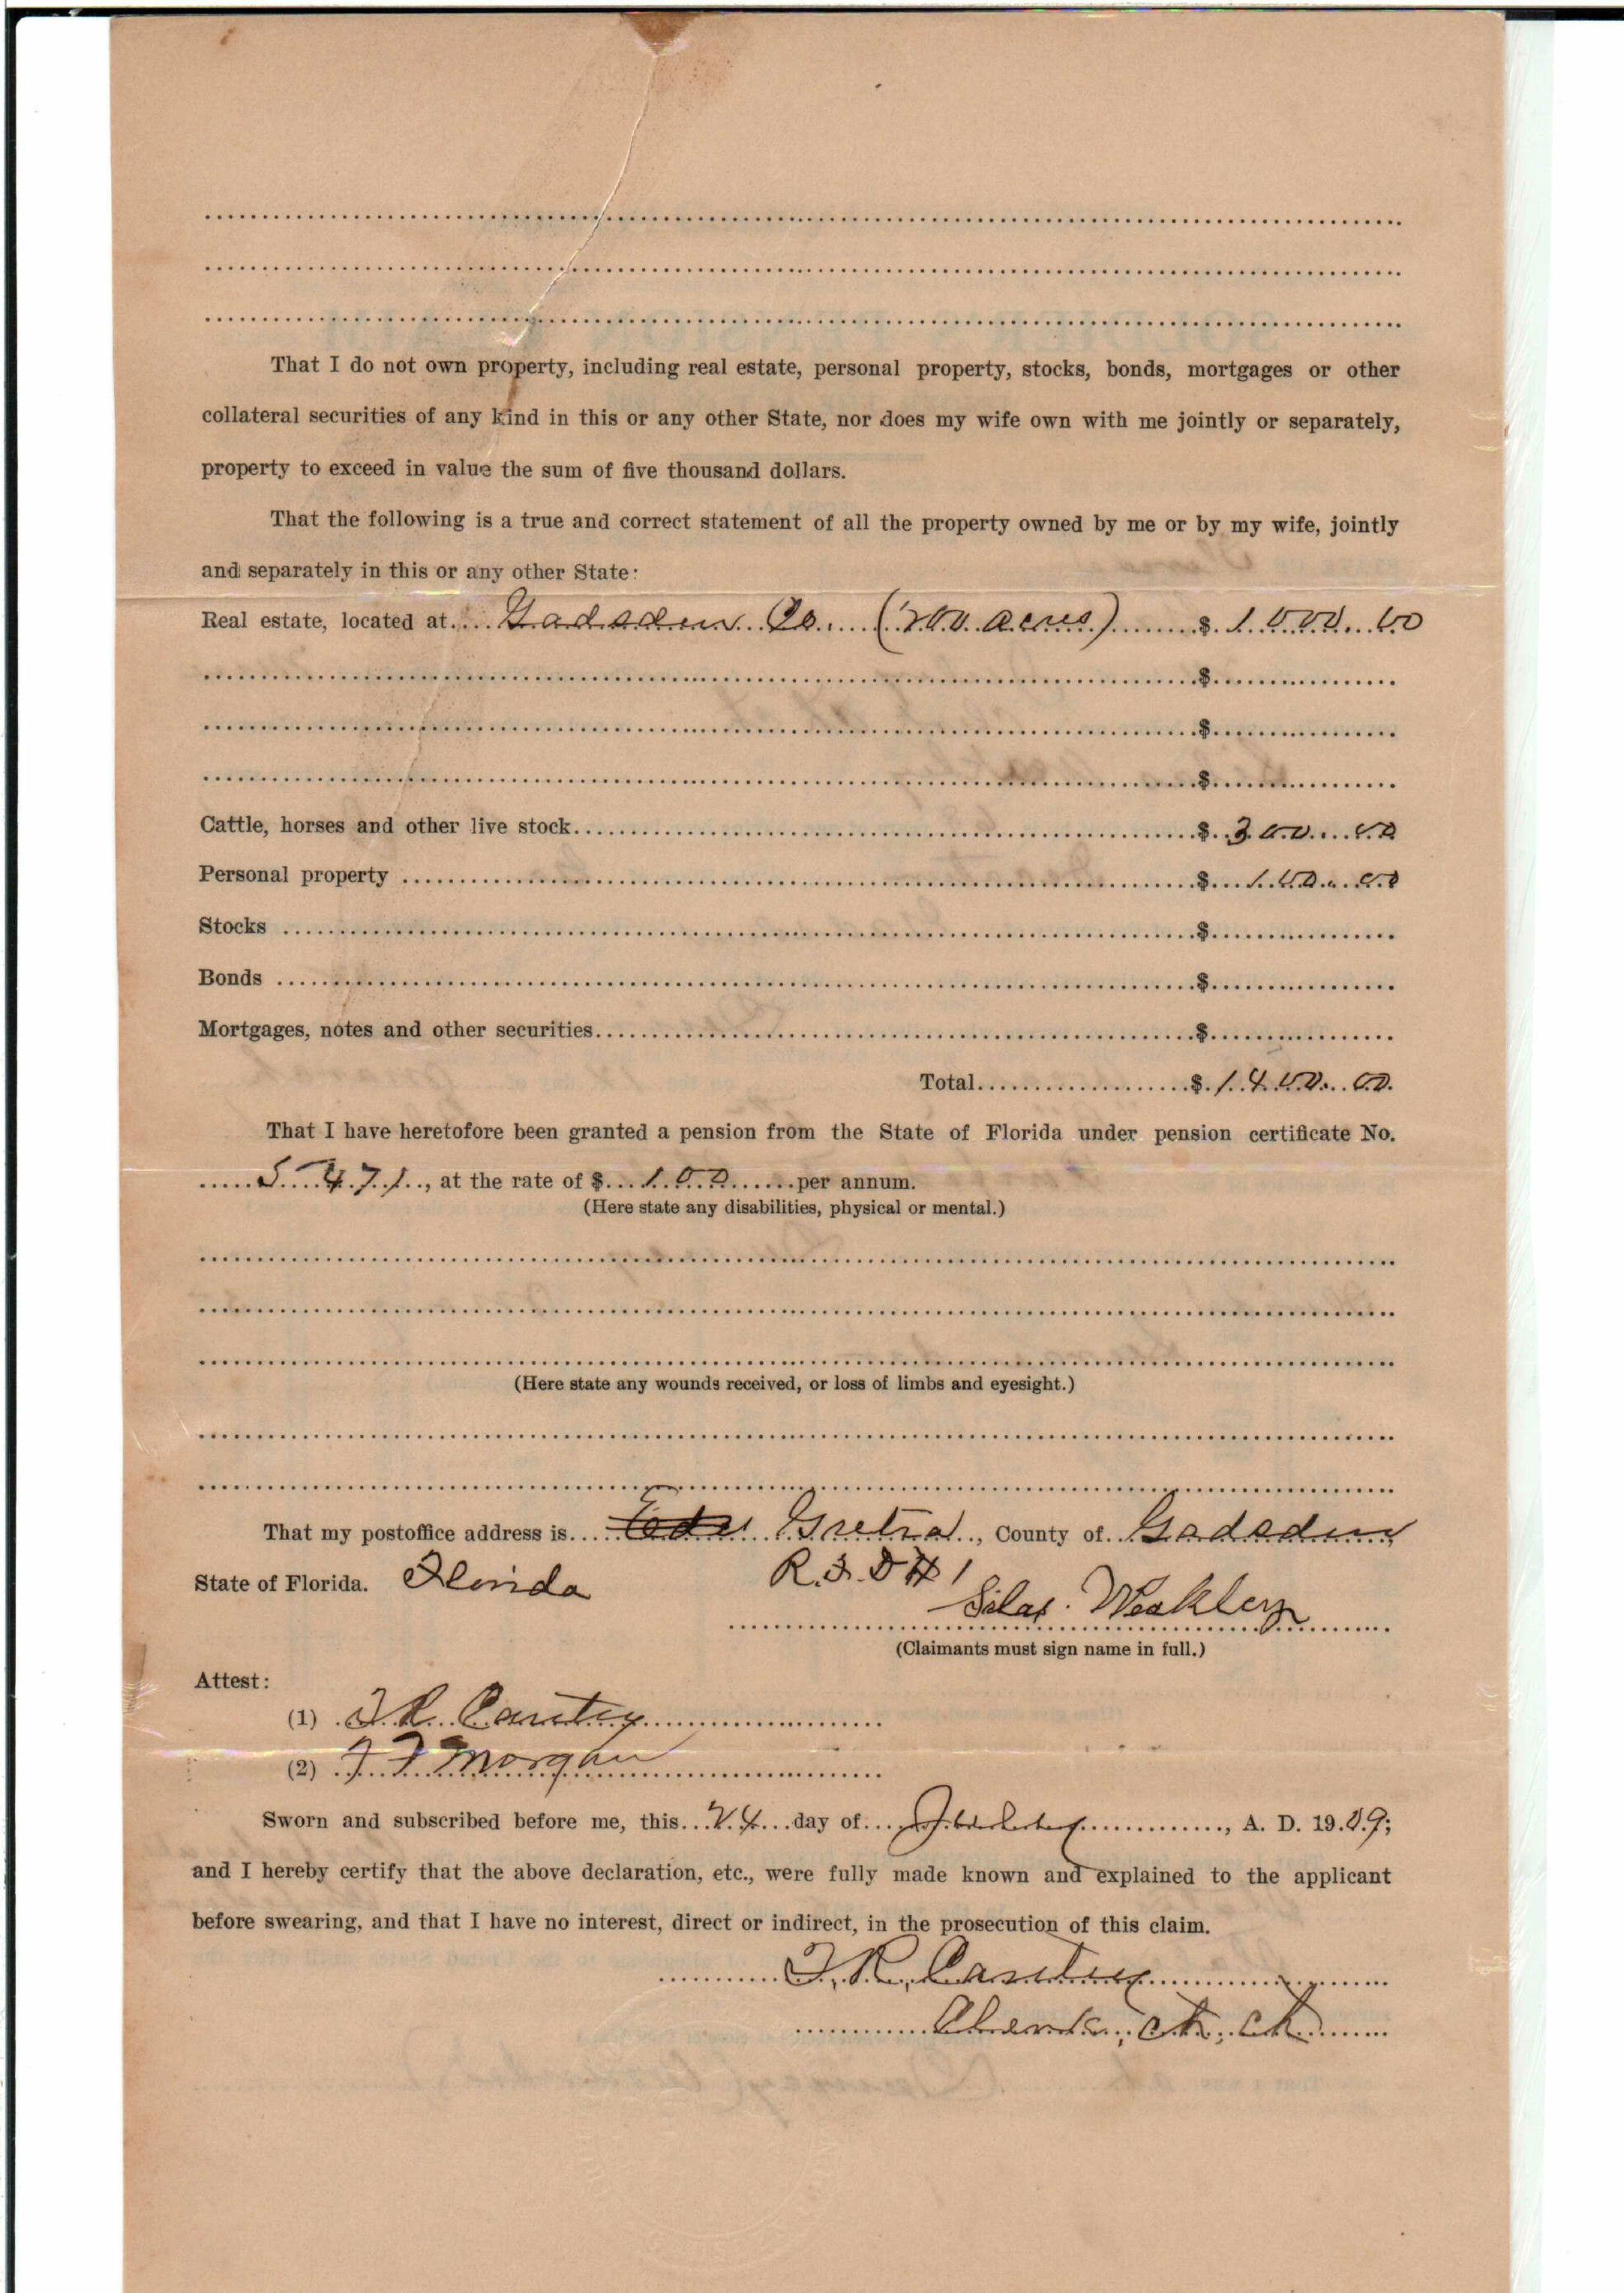 That I do not own property, including real estate, personal property, stocks, bonds, mortgages or other
collateral securities of any kind in this or any other State, nor does my wife own with me jointly or separately,
property to exceed in value the sum of five thousand dollars.
That the following is a true and correct statement of all the property owned by me or by my wife, jointly
and separately in this or any other State:
Real estate, located at Gadsden Co. (200 acres) $ 1000.00
$
$
$
Cattle, horses and other live stock $ 300.00
Personal property $ 100.00
Stocks $
Bonds $
Mortgages, notes and other securities $
Total $ 1400.00
That I have heretofore been granted a pension from the State of Florida under pension certificate No.
5471, at the rate of $ 100 per annum.
(Here state any disabilities, physical or mental.)
(Here state any wounds received, or loss of limbs and eyesight.)
That my postoffice address is Gretna, County of Gadsden,
State of Florida. Florida R.F.D # 1
Silas Weakley
(Claimants must sign name in full.)
Attest:
(1)
(2) Morgan
Sworn and subscribed before me, this 24 day of , A. D. 1909;
and I hereby certify that the above declaration, etc., were fully made known and explained to the applicant
before swearing, and that I have no interest, direct or indirect, in the prosecution of this claim.
Clerk, Ct, Ct